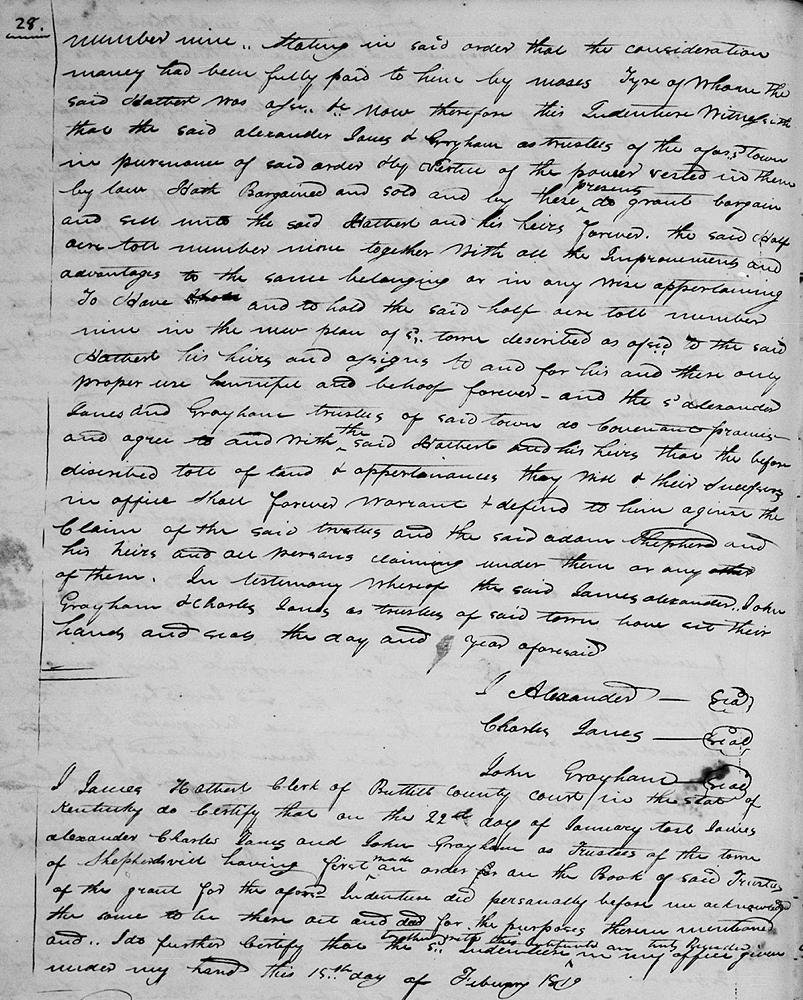 28.
number nine .. Stating in said order that the consideration
money had been fully paid to him by moses Tyre of Whom the
said Hatbert was assn.. &c Now therefore this Indenture Witnesseth
that the said alexander Janes & Grayham as trustees of the afors.d town
in pursuance of said order & by Virtue of the power vested in them
by law Hath Bargained and sold and by these presents do grant bargain
and sell unto the said Hatbert and his heirs forever. the said Half
acre tott number nine together With all the Improvements and
advantages to the same belonging or in any wise appertaining
To Have and to hold the said half acre tott number
nine in the new plan of s.d town described as afsd to the said
Hatbert his heirs and assigns to and for his and there only
proper use bennifit and behoof forever - and the s.d alexander
Janes and Grayham trustees of said town do Covenant promis
and agree to and With the said Hatbert and his heirs that the before
discribed tott of land & appertainances they Will & their Successors
in office Shall forever Warrant & defend to him aginst the
Claim of the said trustees and the said adam Shepherd and
his heirs and all persons claiming under them or any other
of them. In testimony Whereof the said James alexander, John
Grayham & Charles Janes as trustees of said town have set their
hands and seals the day and Year aforesaid
J Alexander — Seal
Charles Janes — Seal
John Grayham — Seal
I James Hatbert Clerk of Bullitt County court in the state of
Kentucky do Certify that on the 22nd day of January last James
alexander Charles Janes and John Grayham as Trustees of the town
of Shepherdsvill having first made an order for on the Book of said Trustees
of the grant for the afors.d Indenture did personally before me acknowledged
the same to be there act and deed for the purposes therein mentioned
and .. I do further Certify that the s.d Indenture together with this certificate are truly Recorded in my office given
under my hand this 15.th day of Febuary 1819